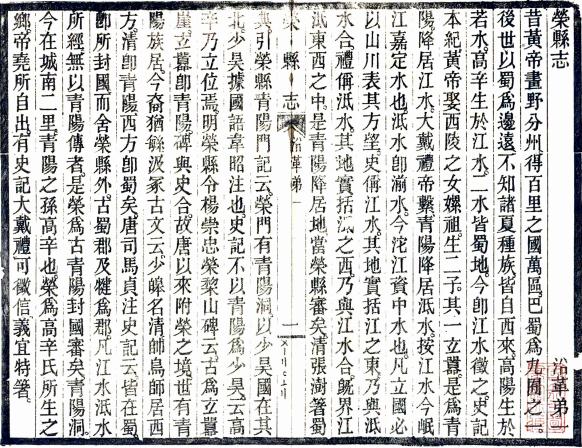 榮縣志
沿革弟一
昔黃帝畫野分州得百里之國萬區巴蜀爲九囿之一
後世以蜀爲邊遠不知諸夏種族皆自西來高陽生於
若水高辛生於江水二水皆蜀地今卽江水徵之史記
本紀黃帝娶西陵之女嫘祖生二子其一立囂是爲青
陽降居江水大戴禮帝繫青陽降居泜水按江水今岷
江嘉定水也泜水卽湔水今沱江資中水也凡立國必
以山川表其方望史偁江水其地實括江之東乃與泜
水合禮偁泜水其地實括泜之西乃與江水合𧰼界江
泜東西之中是青陽降居地當榮縣審矣清張澍箸蜀
典引榮縣青陽門記云榮門有青陽洞以少昊國在其
北少昊據國語韋昭注也史記不以青陽爲少昊云高
辛乃立位焉明榮縣令楊崇忠榮黎山碑云古爲立囂
崖立囂卽青陽碑與史合故唐以來附榮之境世有青
陽族居今畬猶緜汲冢古文云少皞名清師鳥師居西
方清卽青陽西方卽蜀矣唐司馬貞注史記云皆在蜀
卽所封國而舍榮縣外古蜀郡及犍爲郡凡江水泜水
所經無以青陽傳者是榮爲古青陽封國審矣青陽洞
今在城南二里青陽之孫高辛也榮爲高辛氏所生之
鄉帝堯所自出有史記大戴禮可徵信義宜特箸
榮縣志
沿革弟一
一